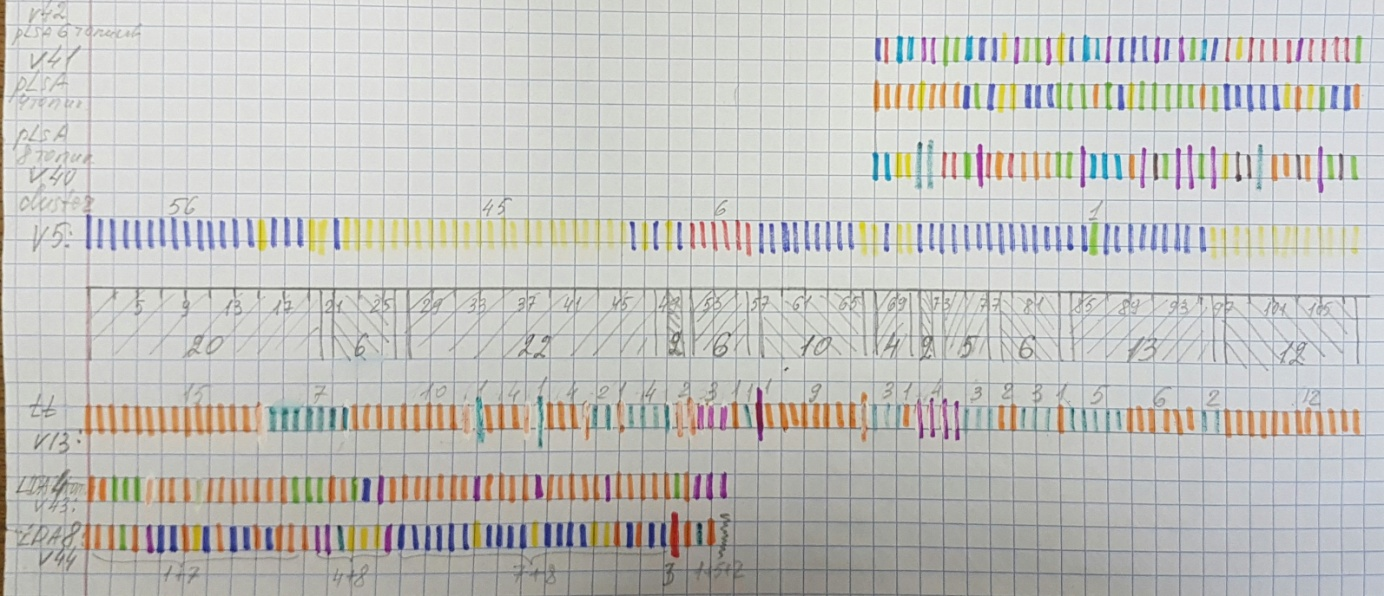 V42
pLSA 6 топиков
V41
pLSA
4 топик
pLSA
8 топик
V40
cluster
56 45 6 1
V5:
5 9 13 17 21 25 29 33 37 41 45 49 53 57 61 65 69 73 77 81 85 89 93 97 101 105
20 6 22 2 6 10 4 2 5 6 13 12
15 7 10 1 4 1 4 2 1 4 2 3 1 1 1 9 3 1 4 3 2 3 1 5 6 2 12
tt
V13:
LDA 4 топ
V43:
LDA8:
V44
1+7 4+8 7+8 3 1+5+2